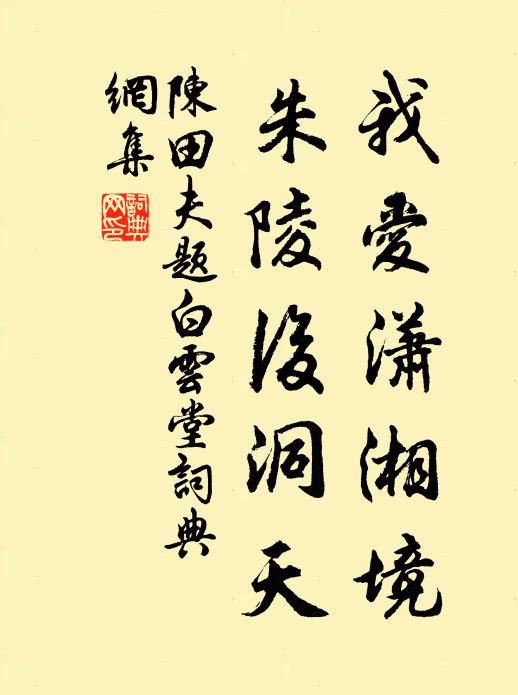 我愛瀟湘境
朱陵後洞天
陳田夫題白雲堂詞典
網集
詞典
网印